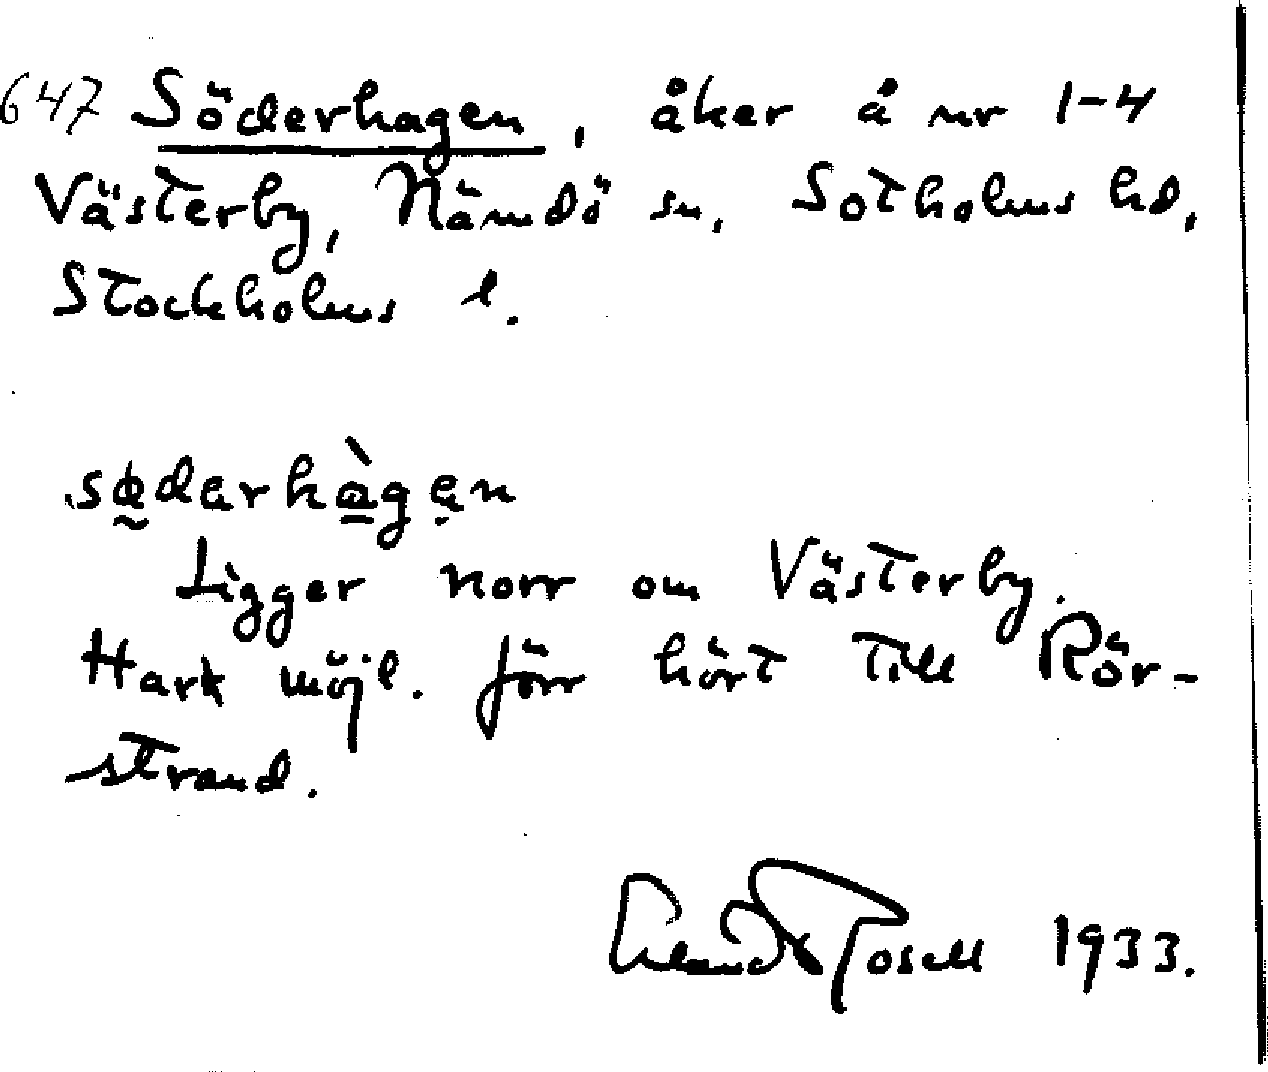 647 Söderhagen, åker å nr 1-4
Västerby, Nämdö sn, Sotholms hd,
Stockholms l.
sødərhàgən
Ligger norr om Västerby.
Hark möjl. förr hört till Rör-
strand.
Erland Rosell 1933.